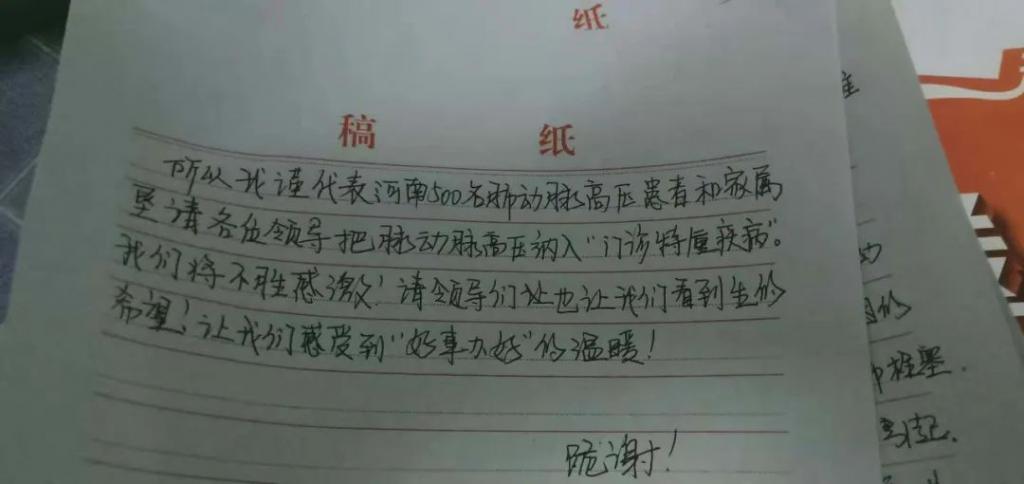 纸
稿 纸
所以我谨代表河南500名肺动脉高压患者和家属
恳请各位领导把肺动脉高压纳入“门诊特重疾病”。
我们将不胜感激!请领导们让也让我们看到生的
希望!让我们感受到“好事办好”的温暖!
跪谢!
的